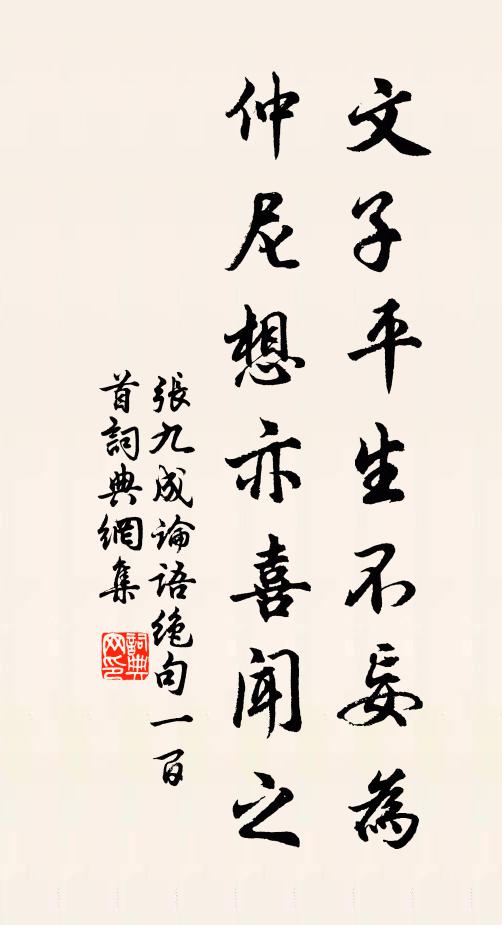 文子平生不妄為
仲尼想亦喜聞之
張九成論語絶句一百
首詞典網集
詞典网印